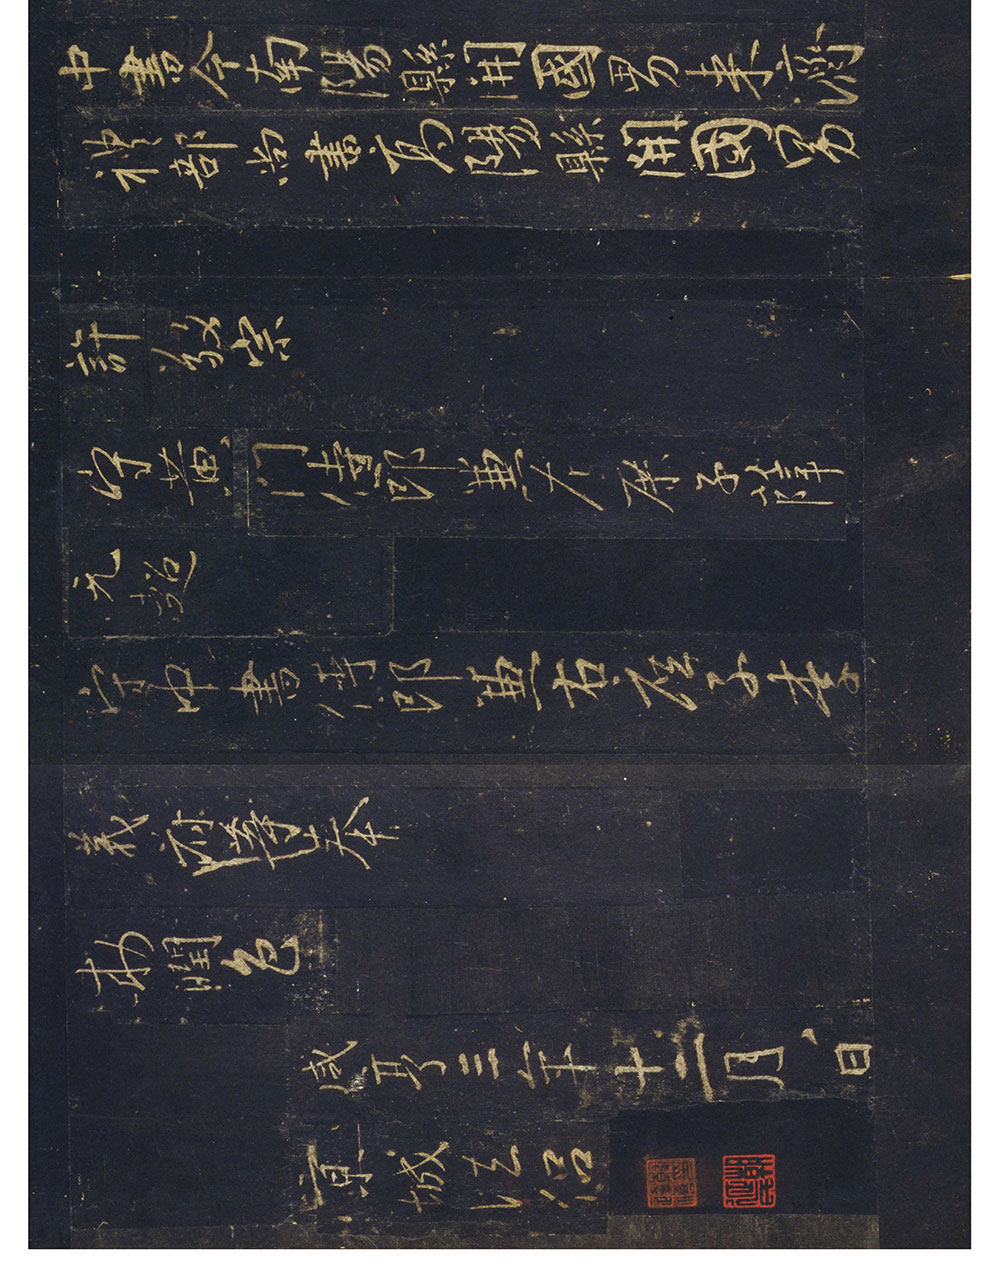 中書令南陽縣開國男來濟
禮部尚書高陽縣開國男
許敬宗
守黃門侍郎兼左庶子薛
元超
守中書侍郎兼右庶子李
義府等奉
勑潤色
咸亨三年十二月八日
京城法侶